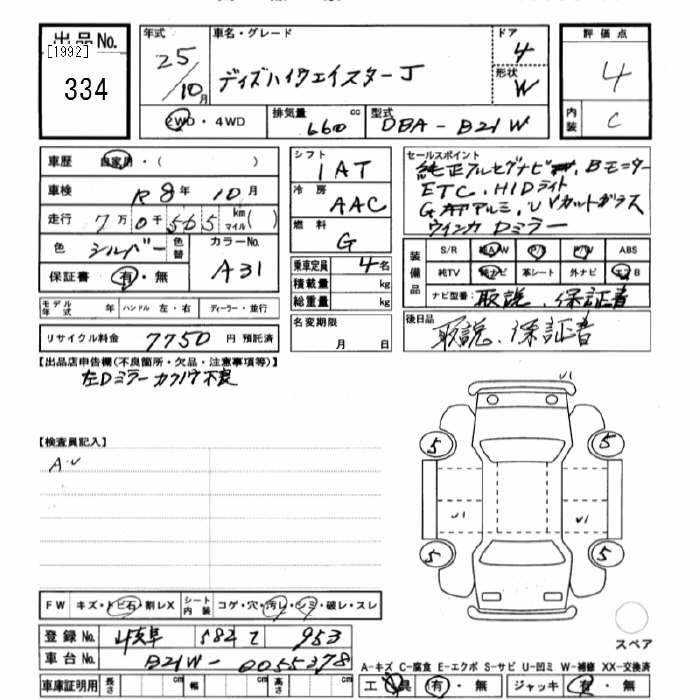 出品No.
[1992]
334
年式 車名・グレード ドア 評価点
25/10月 デイズハイウェイスターJ 4 4
形状 W
2WD・4WD 排気量 660 cc 型式 DBA-B21W 内装 C
車歴 自家用・( )
車検 R8年10月
走行 7万0千565 km マイル( )
色 シルバー 色替 カラーNo. A31
保証書 有・無
モデル年式 年 ハンドル 左・右 ディーラー・並行
リサイクル料金 7750 円 預託済
シフト 1AT
冷房 AAC
燃料 G
乗車定員 4名
積載量 kg
総重量 kg
名変期限 月 日
セールスポイント
純正フルセグナビ Bモニター
ETC、HIDライト
アルミ、UVカットガラス
ウインカDミラー
装備品 S/R 純A/W P/S P/W ABS
純TV 純ナビ 革シート 外ナビ エアB
ナビ型番: 取説、保証書
後日品 取説、保証書
【出品店申告欄(不良箇所・欠品・注意事項等)】
左Dミラー 不良
【検査員記入】
A・U
V1
5 5
V1 V1
5 5
スペア
FW キズ・トビ石・割レX シート内装 コゲ・穴・汚レ・シミ・破レ・スレ
登録No. 岐阜 582 953
車台No. B21W-0055378
A-キズ C-腐食 E-エクボ S-サビ U-凹ミ W-補修 XX-交換済
車庫証明用 長さ cm 幅 cm 高さ cm 工具 有・無 ジャッキ 有・無